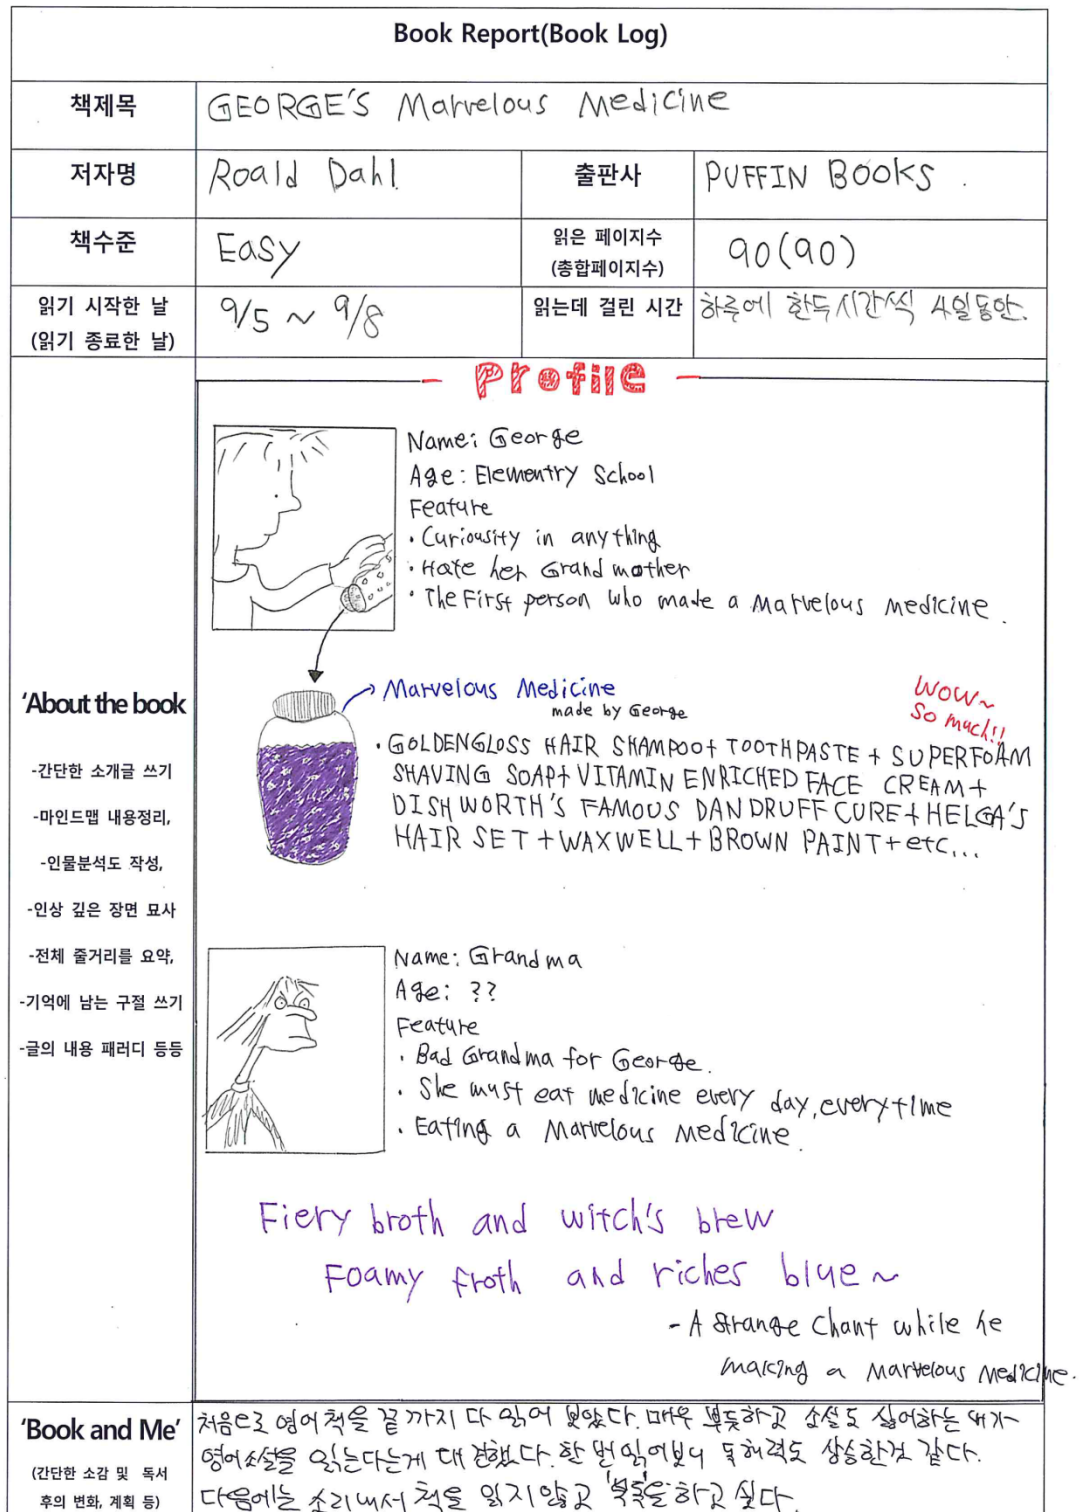 Book Report(Book Log)
책제목 GEORGE'S Marvelous Medicine
저자명 Roald Dahl. 출판사 PUFFIN BOOKS.
책수준 Easy 읽은 페이지수 (총합페이지수) 90(90)
읽기 시작한 날 (읽기 종료한 날) 9/5 ~ 9/8 읽는데 걸린 시간 하루에 한두시간씩 4일동안.
- Profile -
Name: George
Age: Elementry School
Feature
· Curiousity in anything
· Hate her Grand mother
· The First person who made a Marvelous Medicine.
Marvelous Medicine
made by George
WOW~
So much!!
· GOLDENGLOSS HAIR SHAMPOO+ TOOTHPASTE + SUPERFOAM
SHAVING SOAP+ VITAMIN ENRICHED FACE CREAM+
DISHWORTH'S FAMOUS DANDRUFF CURE+HELGA'S
HAIR SET +WAXWELL+BROWN PAINT+etc...
'About the book
-간단한 소개글 쓰기
-마인드맵 내용정리,
-인물분석도 작성,
-인상 깊은 장면 묘사
-전체 줄거리를 요약,
-기억에 남는 구절 쓰기
-글의 내용 패러디 등등
Name: Grandma
Age: ??
Feature
· Bad Grandma for George.
· She must eat medicine every day, everytime
· Eating a Marvelous Medicine.
Fiery broth and witch's brew
Foamy froth and riches blue~
- A Strange Chant while he
making a Marvelous Medicine.
'Book and Me'
(간단한 소감 및 독서
후의 변화, 계획 등)
처음으로 영어 책을 끝까지 다 읽어 보았다. 매우 뿌듯하고 소설도 싫어하는 내가
영어소설을 읽는다는게 대견했다. 한 번 읽어보니 독해력도 상승한것 같다.
다음에는 소리내서 책을 읽지않고 '묵독'을 하고 싶다.